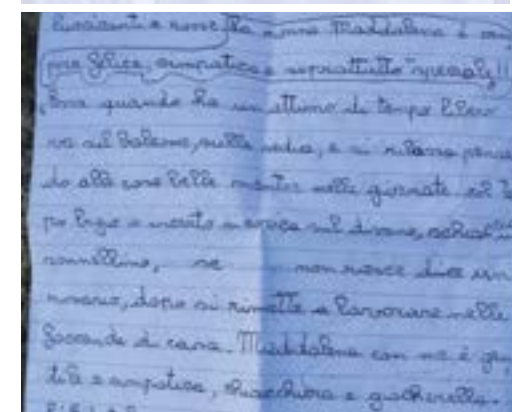 rosse la nonna Maddalena è sem
pre felice, simpatica e soprattutto "speciale"!!
quando ha un attimo di tempo libero
va sul balcone, sulla sedia, e si rilassa pensa
do alle cose belle mentre nelle giornate col te
po e sul divano,
sonnellino, se non riesce dice un
rosario, dopo si rimette a lavorare nelle
faccende di casa. Maddalena con me è gen
tile e simpatica, e giocherella.